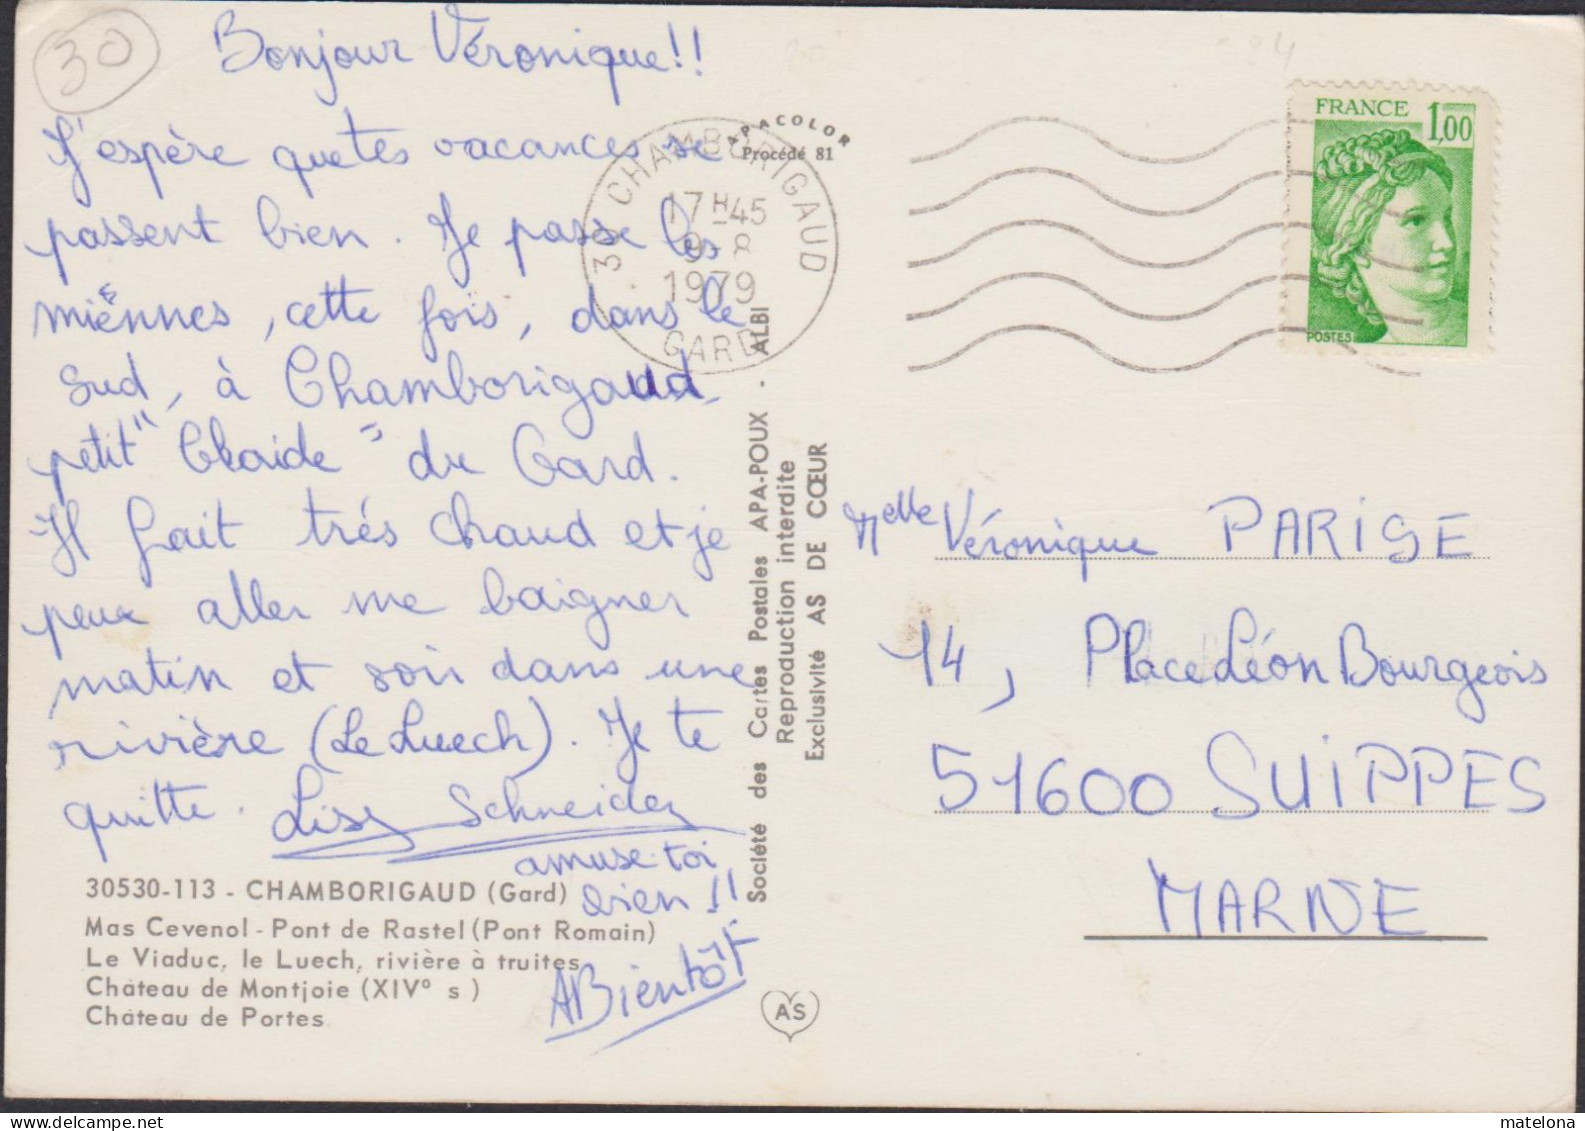 30
Bonjour Véronique!!
J'espère que tes vacances se
passent bien. Je passe les
miennes, cette fois, dans le
Sud, à Chamborigaud
petit "                " du Gard.
Il fait très chaud et je
peux aller me baigner
matin et soir dans une
rivière (Le Luech). Je te
quitte. Lisy Schneider
amuse-toi
bien !!
A Bientôt
30530-113 - CHAMBORIGAUD (Gard)
Mas Cevenol - Pont de Rastel (Pont Romain)
Le Viaduc, le Luech, rivière à truites
Château de Montjoie (XIV° s)
Château de Portes
APACOLOR
Procédé 81
30 CHAMBORIGAUD
17H45
9-8
1979
GARD
Société des Cartes Postales APA-POUX - ALBI
Reproduction interdite
Exclusivité AS DE CŒUR
AS
FRANCE 1,00
POSTES
Melle Véronique PARISE
14, Place Léon Bourgeois
51600 SUIPPES
MARNE
matelona